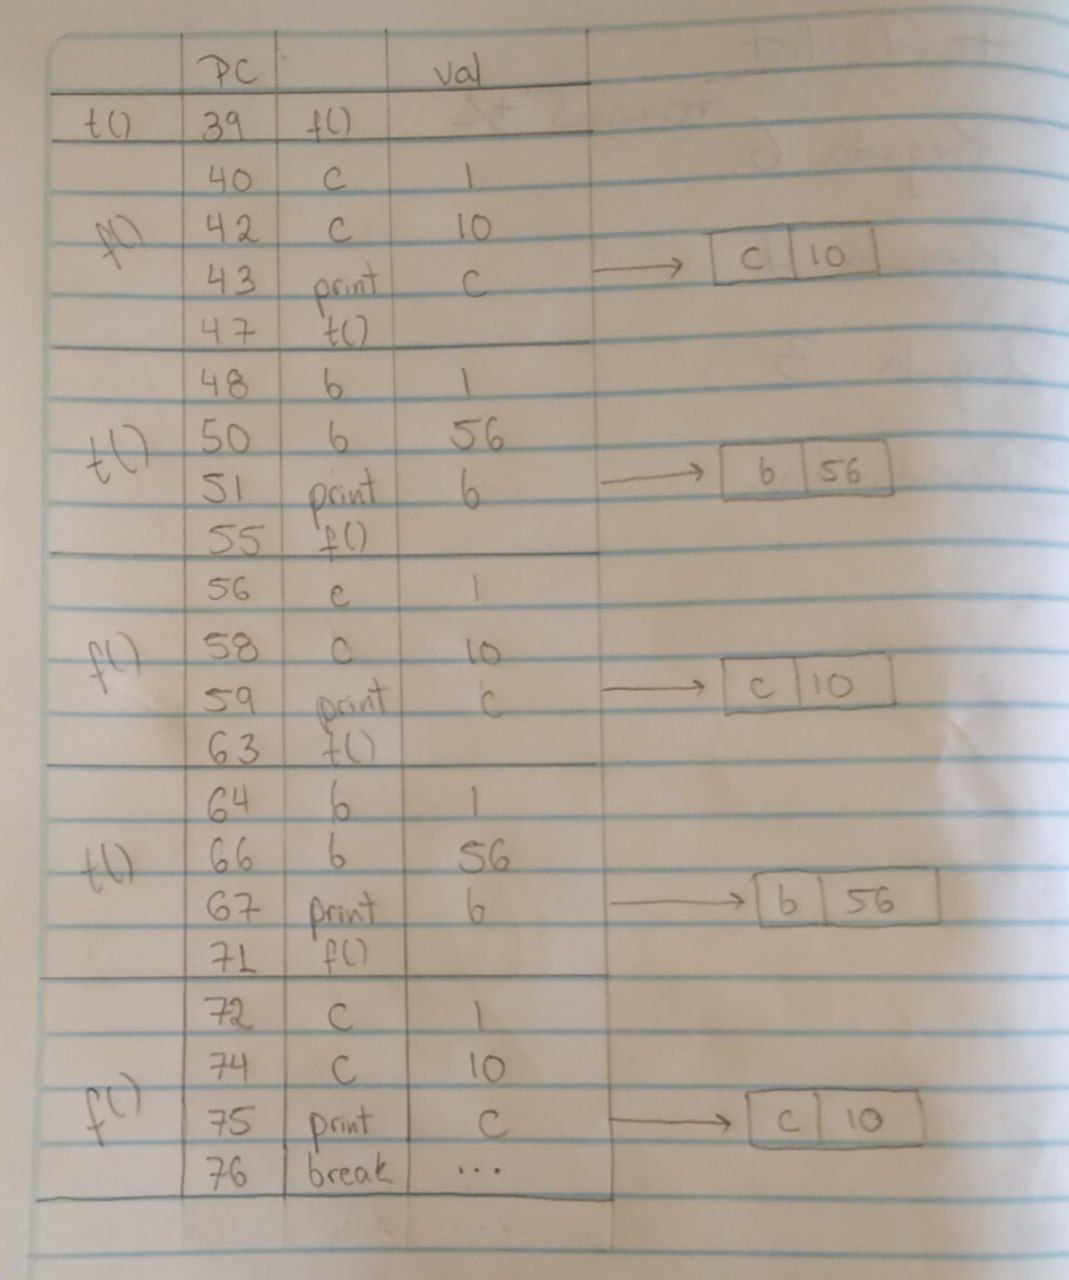 PC val
t() 39 f()
40 c 1
f() 42 c 10
43 print c → c 10
47 t()
48 b 1
t() 50 b 56
51 print b → b 56
55 f()
56 c 1
f() 58 c 10
59 print c → c 10
63 t()
64 b 1
t() 66 b 56
67 print b → b 56
71 f()
72 c 1
74 c 10
f() 75 print c → c 10
76 break ...